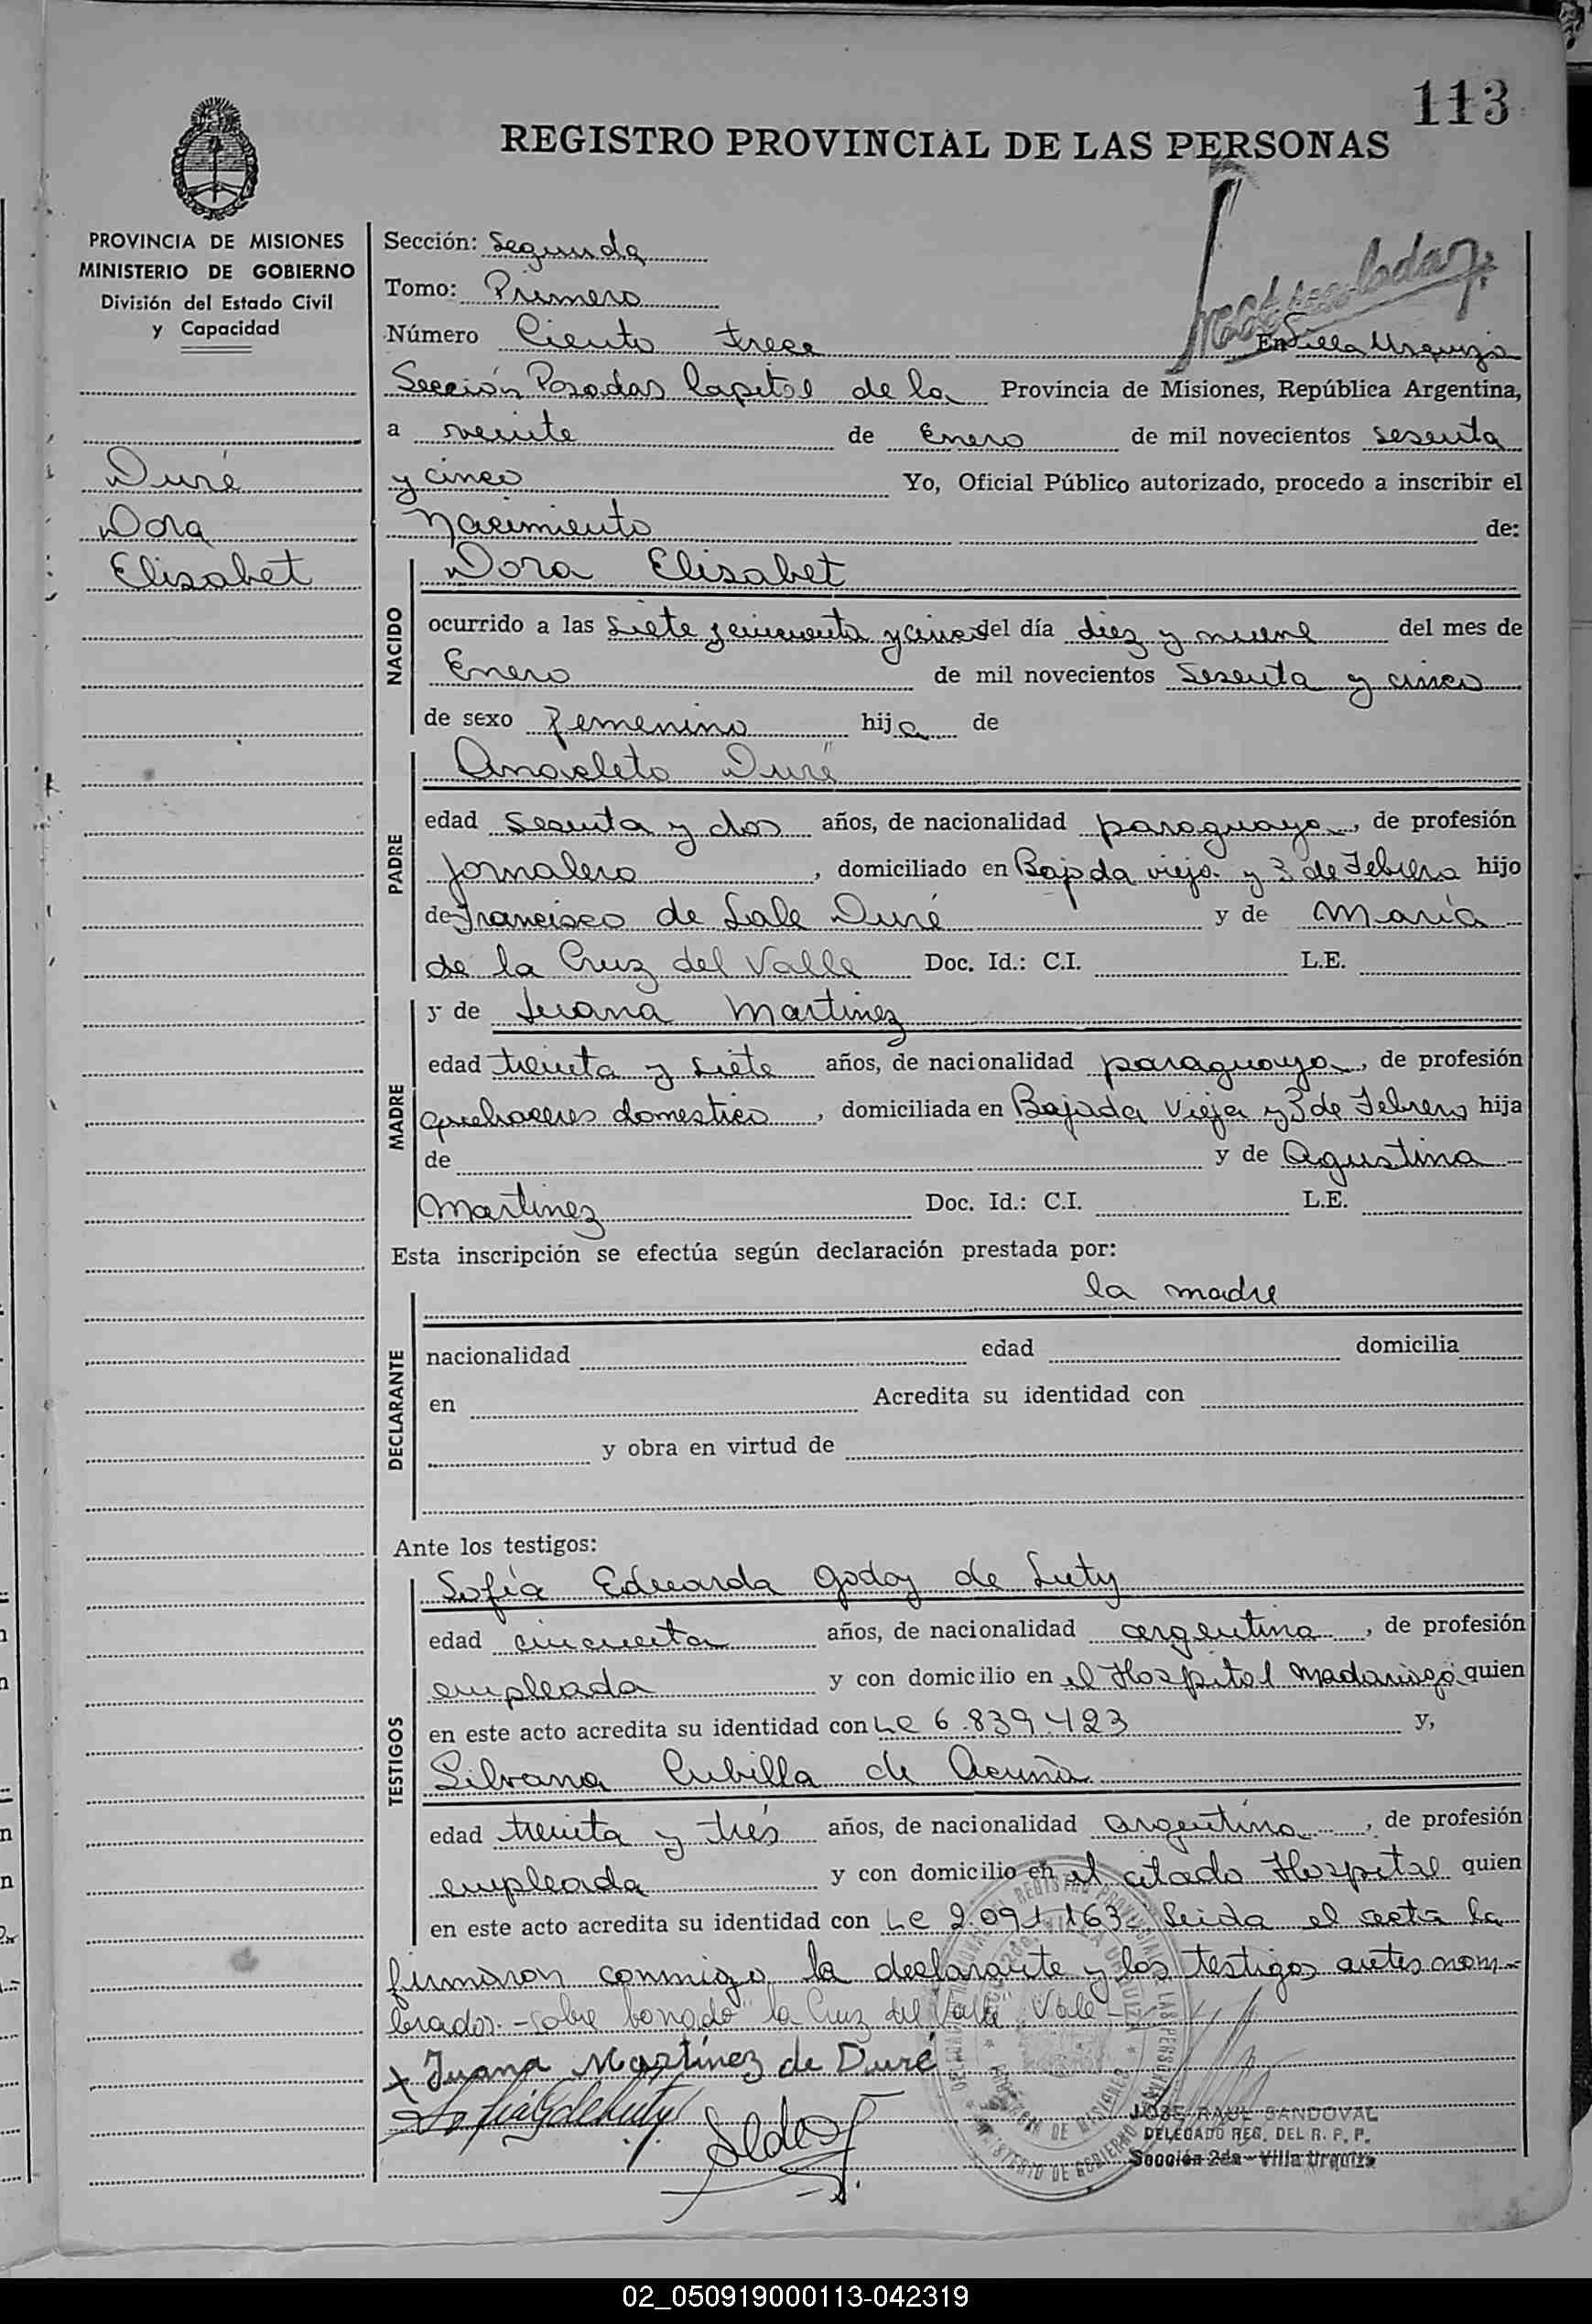 113
REGISTRO PROVINCIAL DE LAS PERSONAS
PROVINCIA DE MISIONES
MINISTERIO DE GOBIERNO
División del Estado Civil
y Capacidad
Duré
Dora
Elisabet
Sección: Segunda
Tomo: Primero
Número Ciento trece En Villa Urquiza
Sección Posadas Capital de la Provincia de Misiones, República Argentina,
a veinte de Enero de mil novecientos sesenta
y cinco Yo, Oficial Público autorizado, procedo a inscribir el
Nacimiento de:
NACIDO
Dora Elisabet
ocurrido a las siete y cincuenta y cinco del día diez y nueve del mes de
Enero de mil novecientos sesenta y cinco
de sexo femenino hija de
PADRE
Anacleto Duré
edad sesenta y dos años, de nacionalidad paraguaya, de profesión
jornalero, domiciliado en Bajada vieja y 3 de Febrero hijo
de Francisco de Sale Duré y de María
de la Cruz del Valle Doc. Id.: C.I. L.E.
MADRE
y de Juana Martinez
edad treinta y siete años, de nacionalidad paraguaya, de profesión
quehaceres domestico, domiciliada en Bajada Vieja y 3 de Febrero hija
de y de Agustina
Martinez Doc. Id.: C.I. L.E.
Esta inscripción se efectúa según declaración prestada por:
DECLARANTE
la madre
nacionalidad edad domicilia
en Acredita su identidad con
y obra en virtud de
Ante los testigos:
TESTIGOS
Sofía Eduarda Godoy de Luty
edad cincuenta años, de nacionalidad argentina, de profesión
empleada y con domicilio en el Hospital Madariaga quien
en este acto acredita su identidad con LC 6.839.423 y,
Silvana Cubilla de Acuña
edad treinta y trés años, de nacionalidad argentina, de profesión
empleada y con domicilio en el citado Hospital quien
en este acto acredita su identidad con LC 2.091.163. Leida el acta la
firmaron conmigo la declarante y los testigos antes nom-
brados.- sobre borrado "la Cruz del Valle" Vale -
x Juana Martínez de Duré
JOSE RAUL SANDOVAL
DELEGADO REG. DEL R. P. P.
Sección 2da - Villa Urquiza
02_050919000113-042319